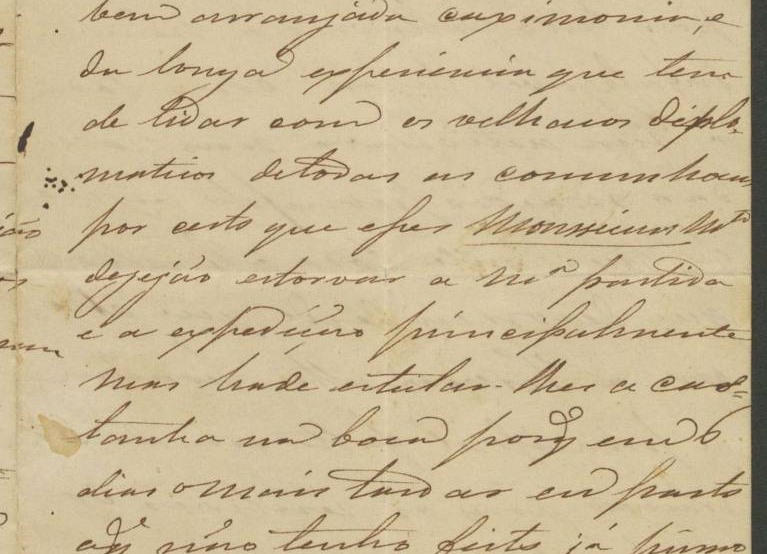 bem arranjada caximonia, e
da longa experiencia que tem
de lidar com os velhacos diplo-
maticos de todas as comunhaens
por certo que esses Monssieurs Mto
dezejão estorvar a ma partida
e a expedição principalmente
mas hade estalar-lhes a cas=
tanha na boca porq em 6
dias o mais tardar eu parto
aqe não tenho feito já